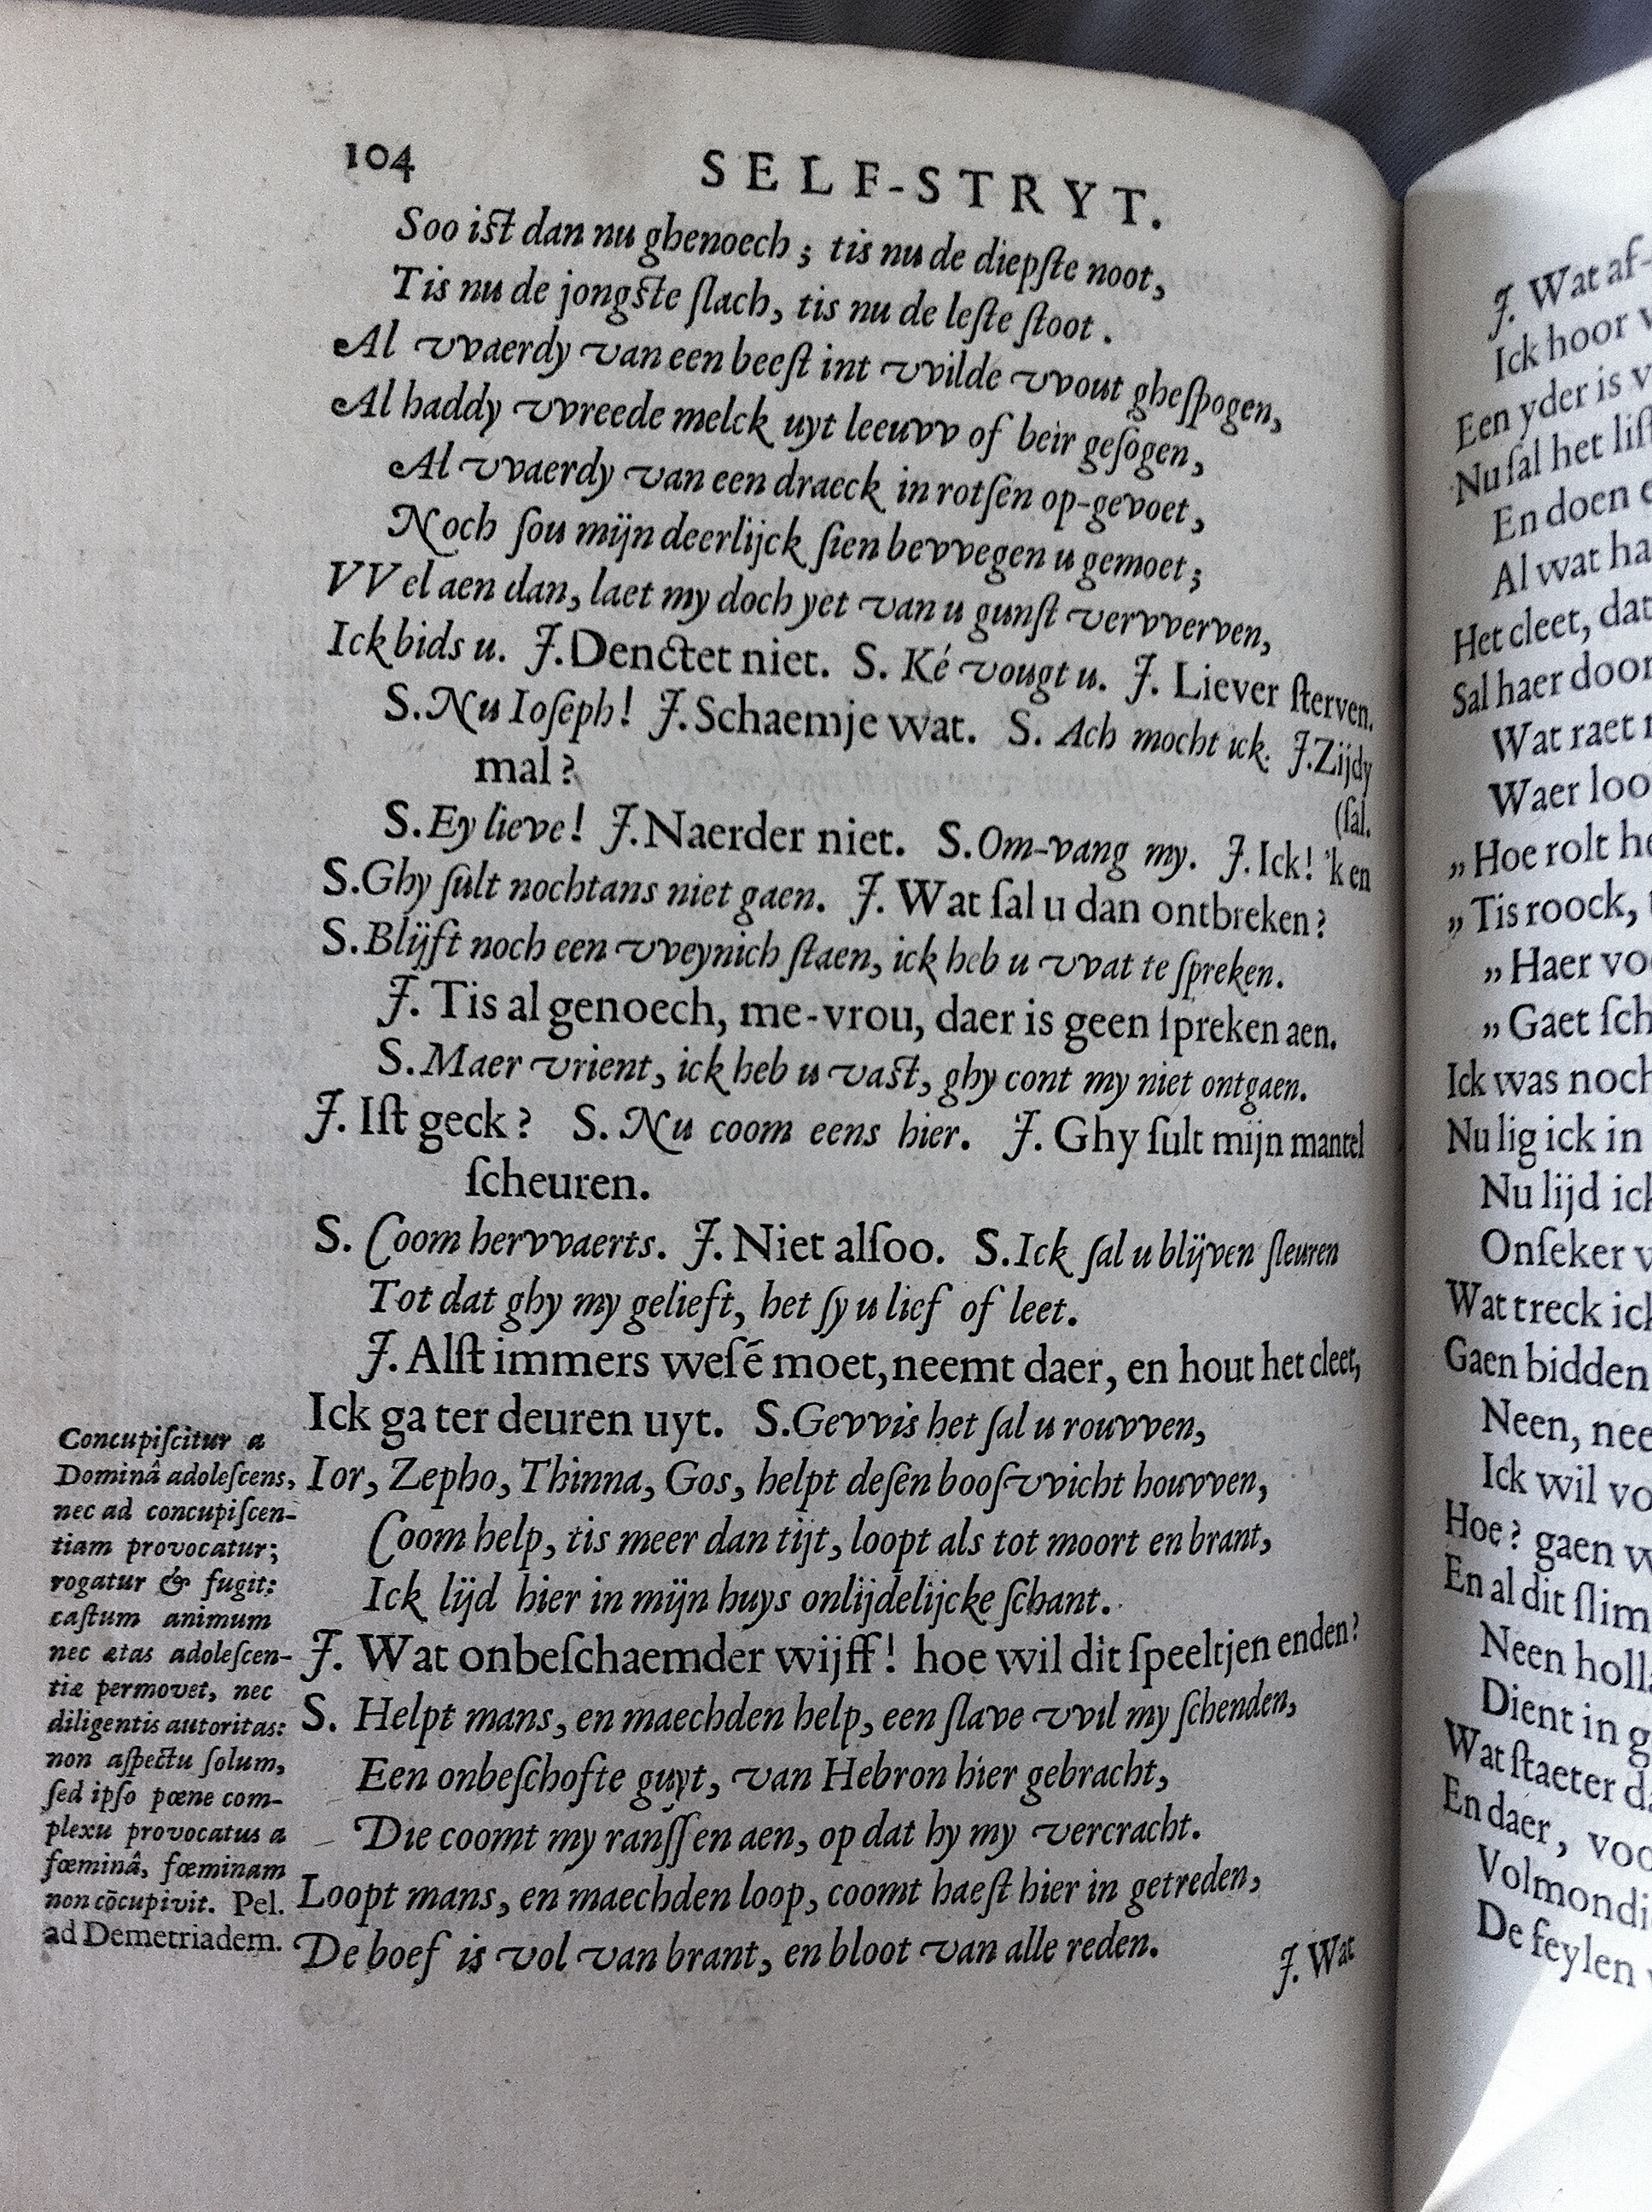 104
SELF-STRYT.
Soo ist dan nu ghenoech; tis nu de diepſte noot,
Tis nu de jongste ſlach, tis nu de leſte ſtoot.
Al vvaerdy van een beeſt int vvilde vvout gheſpogen,
Al haddy vvreede melck uyt leeuvv of beir geſogen,
Al vvaerdy van een draeck in rotſen op-gevoet,
Noch ſou mijn deerlijck ſien bevvegen u gemoet;
VVel aen dan, laet my doch yet van u gunſt vervverven,
Ick bids u. J. Denctet niet. S. Ké vougt u. J. Liever ſterven.
S. Nu Ioſeph! J. Schaemje wat. S. Ach mocht ick. J. Zijdy
mal?
(ſal.
S. Ey lieve! J. Naerder niet. S. Om-vang my. J. Ick! 'k en
S. Ghy ſult nochtans niet gaen. J. Wat ſal u dan ontbreken?
S. Blijft noch een vveynich ſtaen, ick heb u vvat te ſpreken.
J. Tis al genoech, me-vrou, daer is geen ſpreken aen.
S. Maer vrient, ick heb u vast, ghy cont my niet ontgaen.
J. Iſt geck? S. Nu coom eens hier. J. Ghy ſult mijn mantel
ſcheuren.
S. Coom hervvaerts. J. Niet alſoo. S. Ick ſal u blijven ſleuren
Tot dat ghy my gelieft, het ſy u lief of leet.
J. Alſt immers weſē moet, neemt daer, en hout het cleet,
Ick ga ter deuren uyt. S. Gevvis het ſal u rouvven,
Ior, Zepho, Thinna, Gos, helpt deſen booſvvicht houvven,
Coom help, tis meer dan tijt, loopt als tot moort en brant,
Ick lijd hier in mijn huys onlijdelijcke ſchant.
J. Wat onbeſchaemder wijff! hoe wil dit ſpeeltjen enden?
S. Helpt mans, en maechden help, een ſlave vvil my ſchenden,
Een onbeſchofte guyt, van Hebron hier gebracht,
Die coomt my ranſſen aen, op dat hy my vercracht.
Loopt mans, en maechden loop, coomt haeſt hier in getreden,
De boef is vol van brant, en bloot van alle reden.
J. Wat
Concupiſcitur a
Dominâ adoleſcens,
nec ad concupiſcen-
tiam provocatur;
rogatur & fugit:
caſtum animum
nec ætas adoleſcen-
tiæ permovet, nec
diligentis autoritas:
non aſpectu ſolum,
ſed ipſo pœne com-
plexu provocatus a
fœminâ, fœminam
non cōcupivit. Pel.
ad Demetriadem.
J. Wat af-
Ick hoor
Een yder is
Nu ſal het
En doen
Al wat
Het cleet, dat
Sal haer door
Wat raet
Waer
„Hoe rolt
„Tis roock,
„Haer
„Gaet
Ick was noch
Nu lig ick in
Nu lijd ick
Onſeker
Wat treck ick
Gaen bidden
Neen, neen
Ick wil
Hoe? gaen
En al dit
Neen
Dient in
Wat ſtaeter
En daer,
Volmondi
De feylen